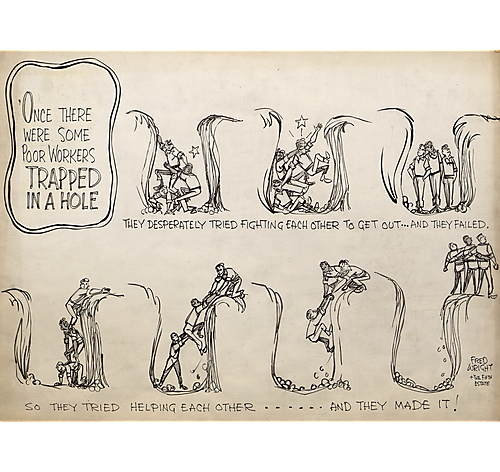 'ONCE THERE
WERE SOME
POOR WORKERS
TRAPPED
IN A HOLE
THEY DESPERATELY TRIED FIGHTING EACH OTHER TO GET OUT...AND THEY FAILED.
SO THEY TRIED HELPING EACH OTHER ...... AND THEY MADE IT!
FRED
WRIGHT
+ THE FIFTH
ESTATE